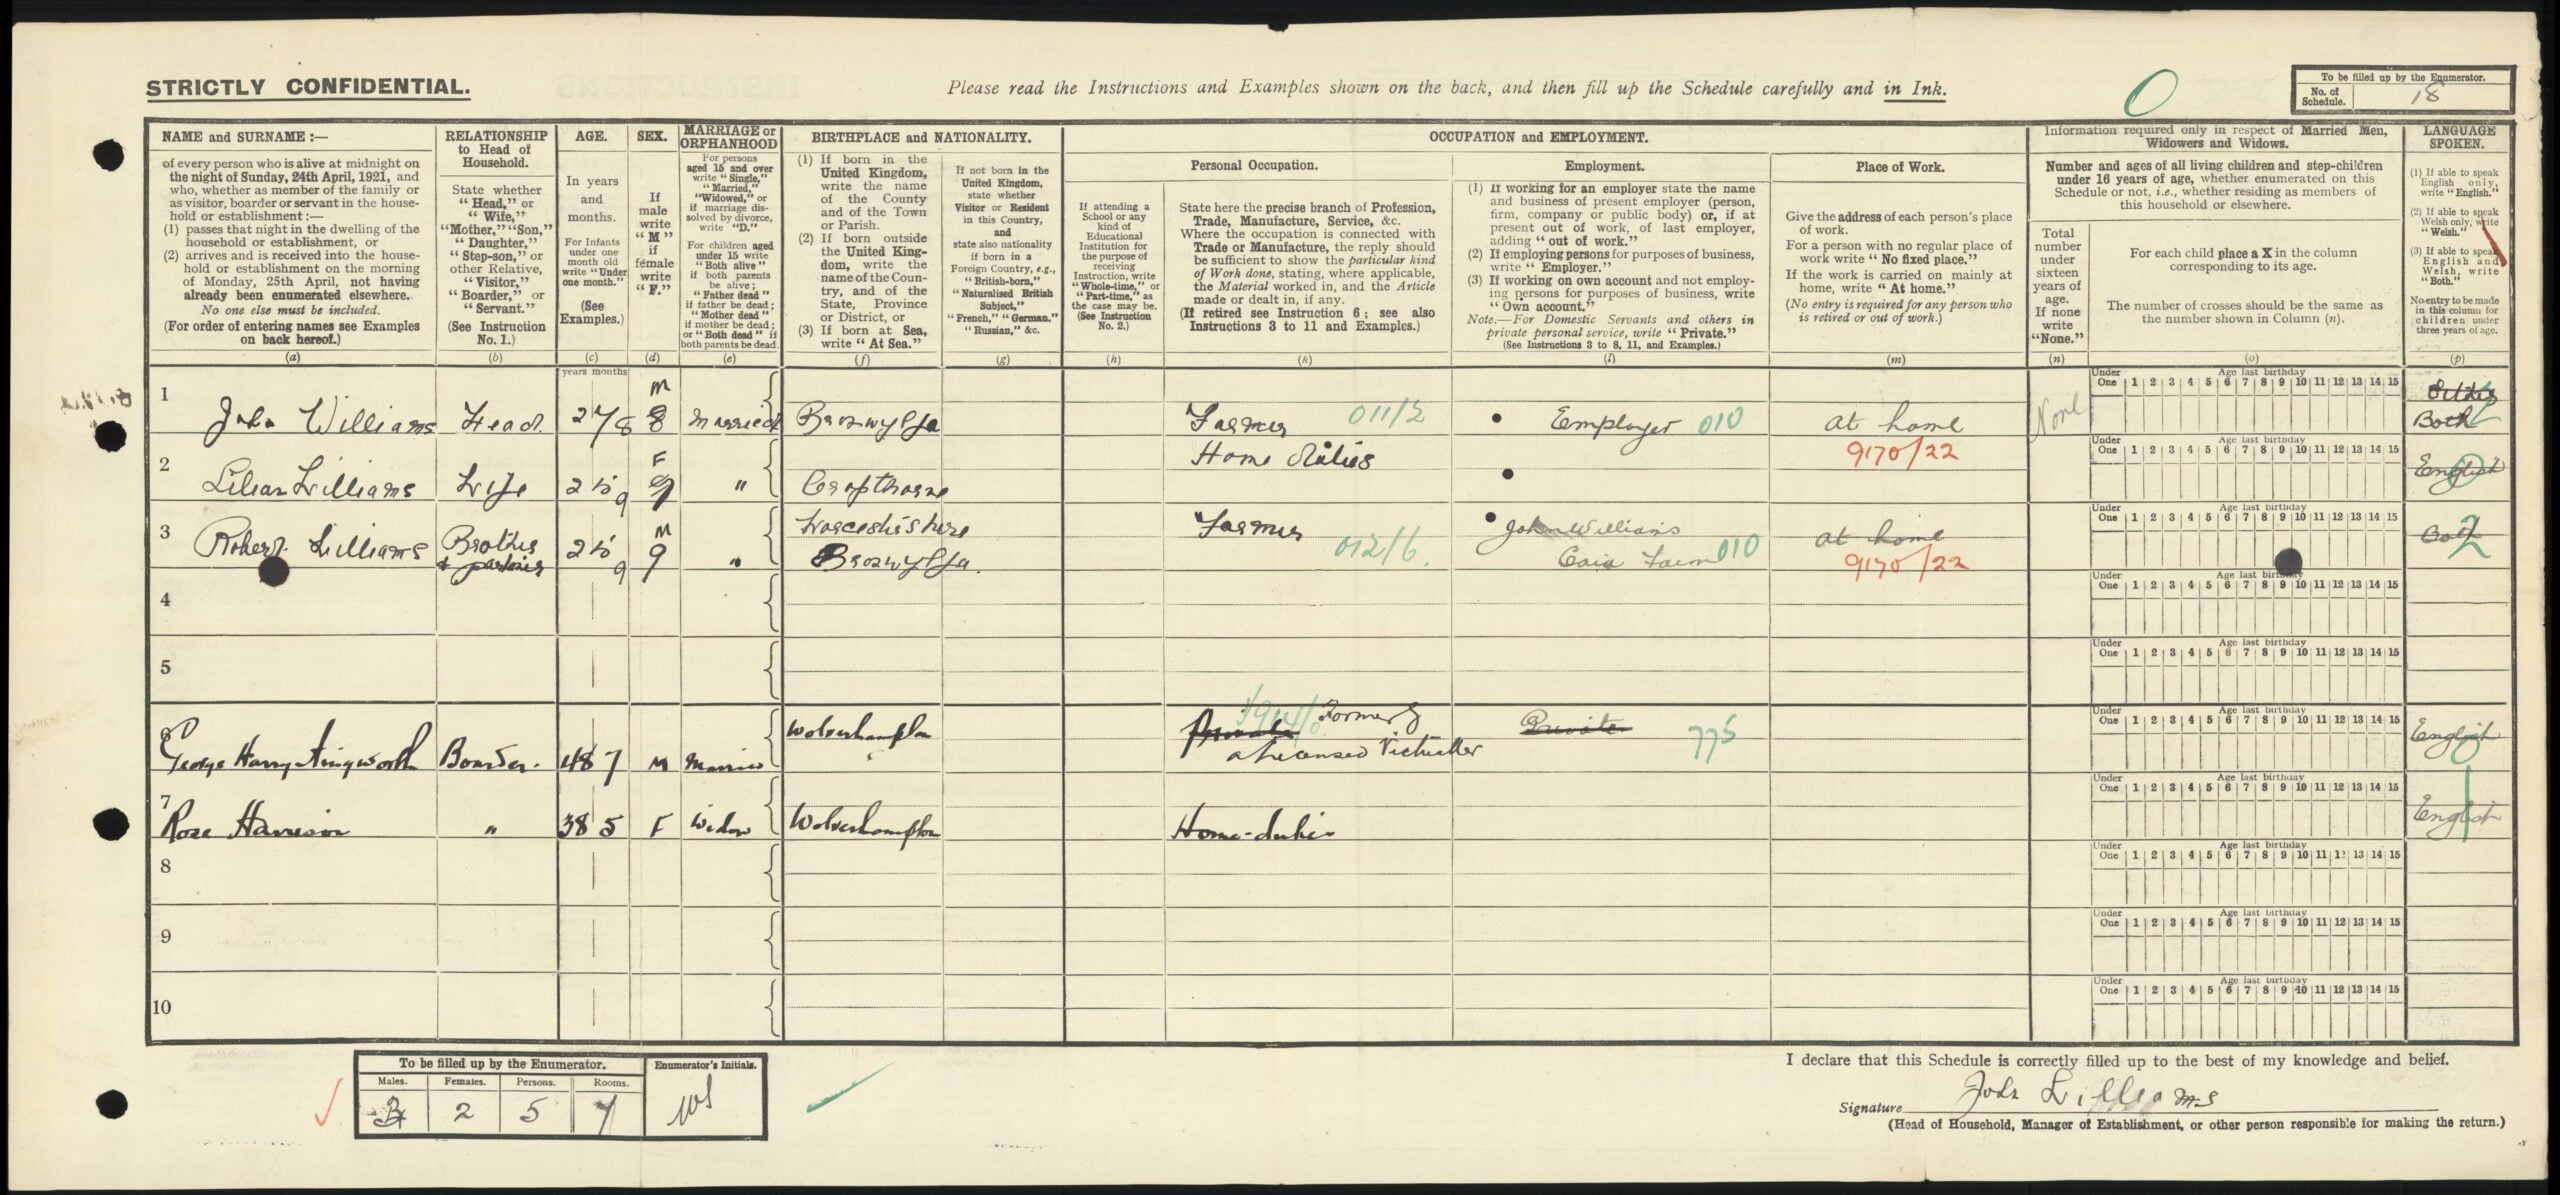 STRICTLY CONFIDENTIAL.
Please read the Instructions and Examples shown on the back, and then fill up the Schedule carefully and in Ink.
To be filled up by the Enumerator.
No. of Schedule. 18
NAME and SURNAME :—
of every person who is alive at midnight on
the night of Sunday, 24th April, 1921, and
who, whether as member of the family or
as visitor, boarder or servant in the house-
hold or establishment :—
(1) passes that night in the dwelling of the
household or establishment, or
(2) arrives and is received into the house-
hold or establishment on the morning
of Monday, 25th April, not having
already been enumerated elsewhere.
No one else must be included.
(For order of entering names see Examples
on back hereof.)
(a)
RELATIONSHIP
to Head of
Household.
State whether
"Head," or
"Wife,"
"Mother," "Son,"
"Daughter,"
"Step-son," or
other Relative,
"Visitor,"
"Boarder," or
"Servant."
(See Instruction
No. 1.)
(b)
AGE.
In years
and
months.
For Infants
under one
month old
write "Under
one month."
(See
Examples.)
(c)
SEX.
If
male
write
"M"
if
female
write
"F."
(d)
MARRIAGE or
ORPHANHOOD
For persons
aged 15 and over
write "Single,"
"Married,"
"Widowed," or
if marriage dis-
solved by divorce,
write "D."
For children aged
under 15 write
"Both alive"
if both parents
be alive ;
"Father dead"
if father be dead ;
"Mother dead"
if mother be dead ;
or "Both dead" if
both parents be dead.
(e)
BIRTHPLACE and NATIONALITY.
(1) If born in the
United Kingdom,
write the name
of the County
and of the Town
or Parish.
(2) If born outside
the United King-
dom, write the
name of the Coun-
try, and of the
State, Province
or District, or
(3) If born at Sea,
write "At Sea."
(f)
If not born in the
United Kingdom,
state whether
Visitor or Resident
in this Country,
and
state also nationality
if born in a
Foreign Country, e.g.,
"British-born,"
"Naturalised British
Subject,"
"French," "German,"
"Russian," &c.
(g)
OCCUPATION and EMPLOYMENT.
If attending a
School or any
kind of
Educational
Institution for
the purpose of
receiving
Instruction, write
"Whole-time," or
"Part-time," as
the case may be.
(See Instruction
No. 2.)
(h)
Personal Occupation.
State here the precise branch of Profession,
Trade, Manufacture, Service, &c.
Where the occupation is connected with
Trade or Manufacture, the reply should
be sufficient to show the particular kind
of Work done, stating, where applicable,
the Material worked in, and the Article
made or dealt in, if any.
(If retired see Instruction 6 ; see also
Instructions 3 to 11 and Examples.)
(k)
Employment.
(1) If working for an employer state the name
and business of present employer (person,
firm, company or public body) or, if at
present out of work, of last employer,
adding "out of work."
(2) If employing persons for purposes of business,
write "Employer."
(3) If working on own account and not employ-
ing persons for purposes of business, write
"Own account."
Note.—For Domestic Servants and others in
private personal service, write "Private."
(See Instructions 3 to 8, 11, and Examples.)
(l)
Place of Work.
Give the address of each person's place
of work.
For a person with no regular place of
work write "No fixed place."
If the work is carried on mainly at
home, write "At home."
(No entry is required for any person who
is retired or out of work.)
(m)
Information required only in respect of Married Men,
Widowers and Widows.
Number and ages of all living children and step-children
under 16 years of age, whether enumerated on this
Schedule or not, i.e., whether residing as members of
this household or elsewhere.
Total
number
under
sixteen
years of
age.
If none
write
"None."
(n)
For each child place a X in the column
corresponding to its age.
The number of crosses should be the same as
the number shown in Column (n).
(o)
LANGUAGE
SPOKEN.
(1) If able to speak
English only,
write "English."
(2) If able to speak
Welsh only, write
"Welsh."
(3) If able to speak
English and
Welsh, write
"Both."
No entry to be made
in this column for
children under
three years of age.
(p)
years months
Under One Age last birthday 1 2 3 4 5 6 7 8 9 10 11 12 13 14 15
1 John Williams Head 27 8 M Married Bronwylfa Farmer 011/2 Employer 010 at home None Both
9170/22
2 Lilian Williams Wife 25 9 F " Cropthorne Home duties English
Worcestershire
3 Robert Williams Brother & partner 25 9 M " Bronwylfa. Farmer 012/6. John Williams Caia Farm 010 at home Both 2
9170/22
4
5
6 George Harry Aingworth Boarder. 48 7 M Married Wolverhampton Private Formerly a Licensed Victualler Private 775 English
7 Rose Harrison " 38 5 F Widow Wolverhampton Home-duties English
8
9
10
To be filled up by the Enumerator.
Males. Females. Persons. Rooms.
3 2 5 7
Enumerator's Initials.
I declare that this Schedule is correctly filled up to the best of my knowledge and belief.
Signature John Williams
(Head of Household, Manager of Establishment, or other person responsible for making the return.)